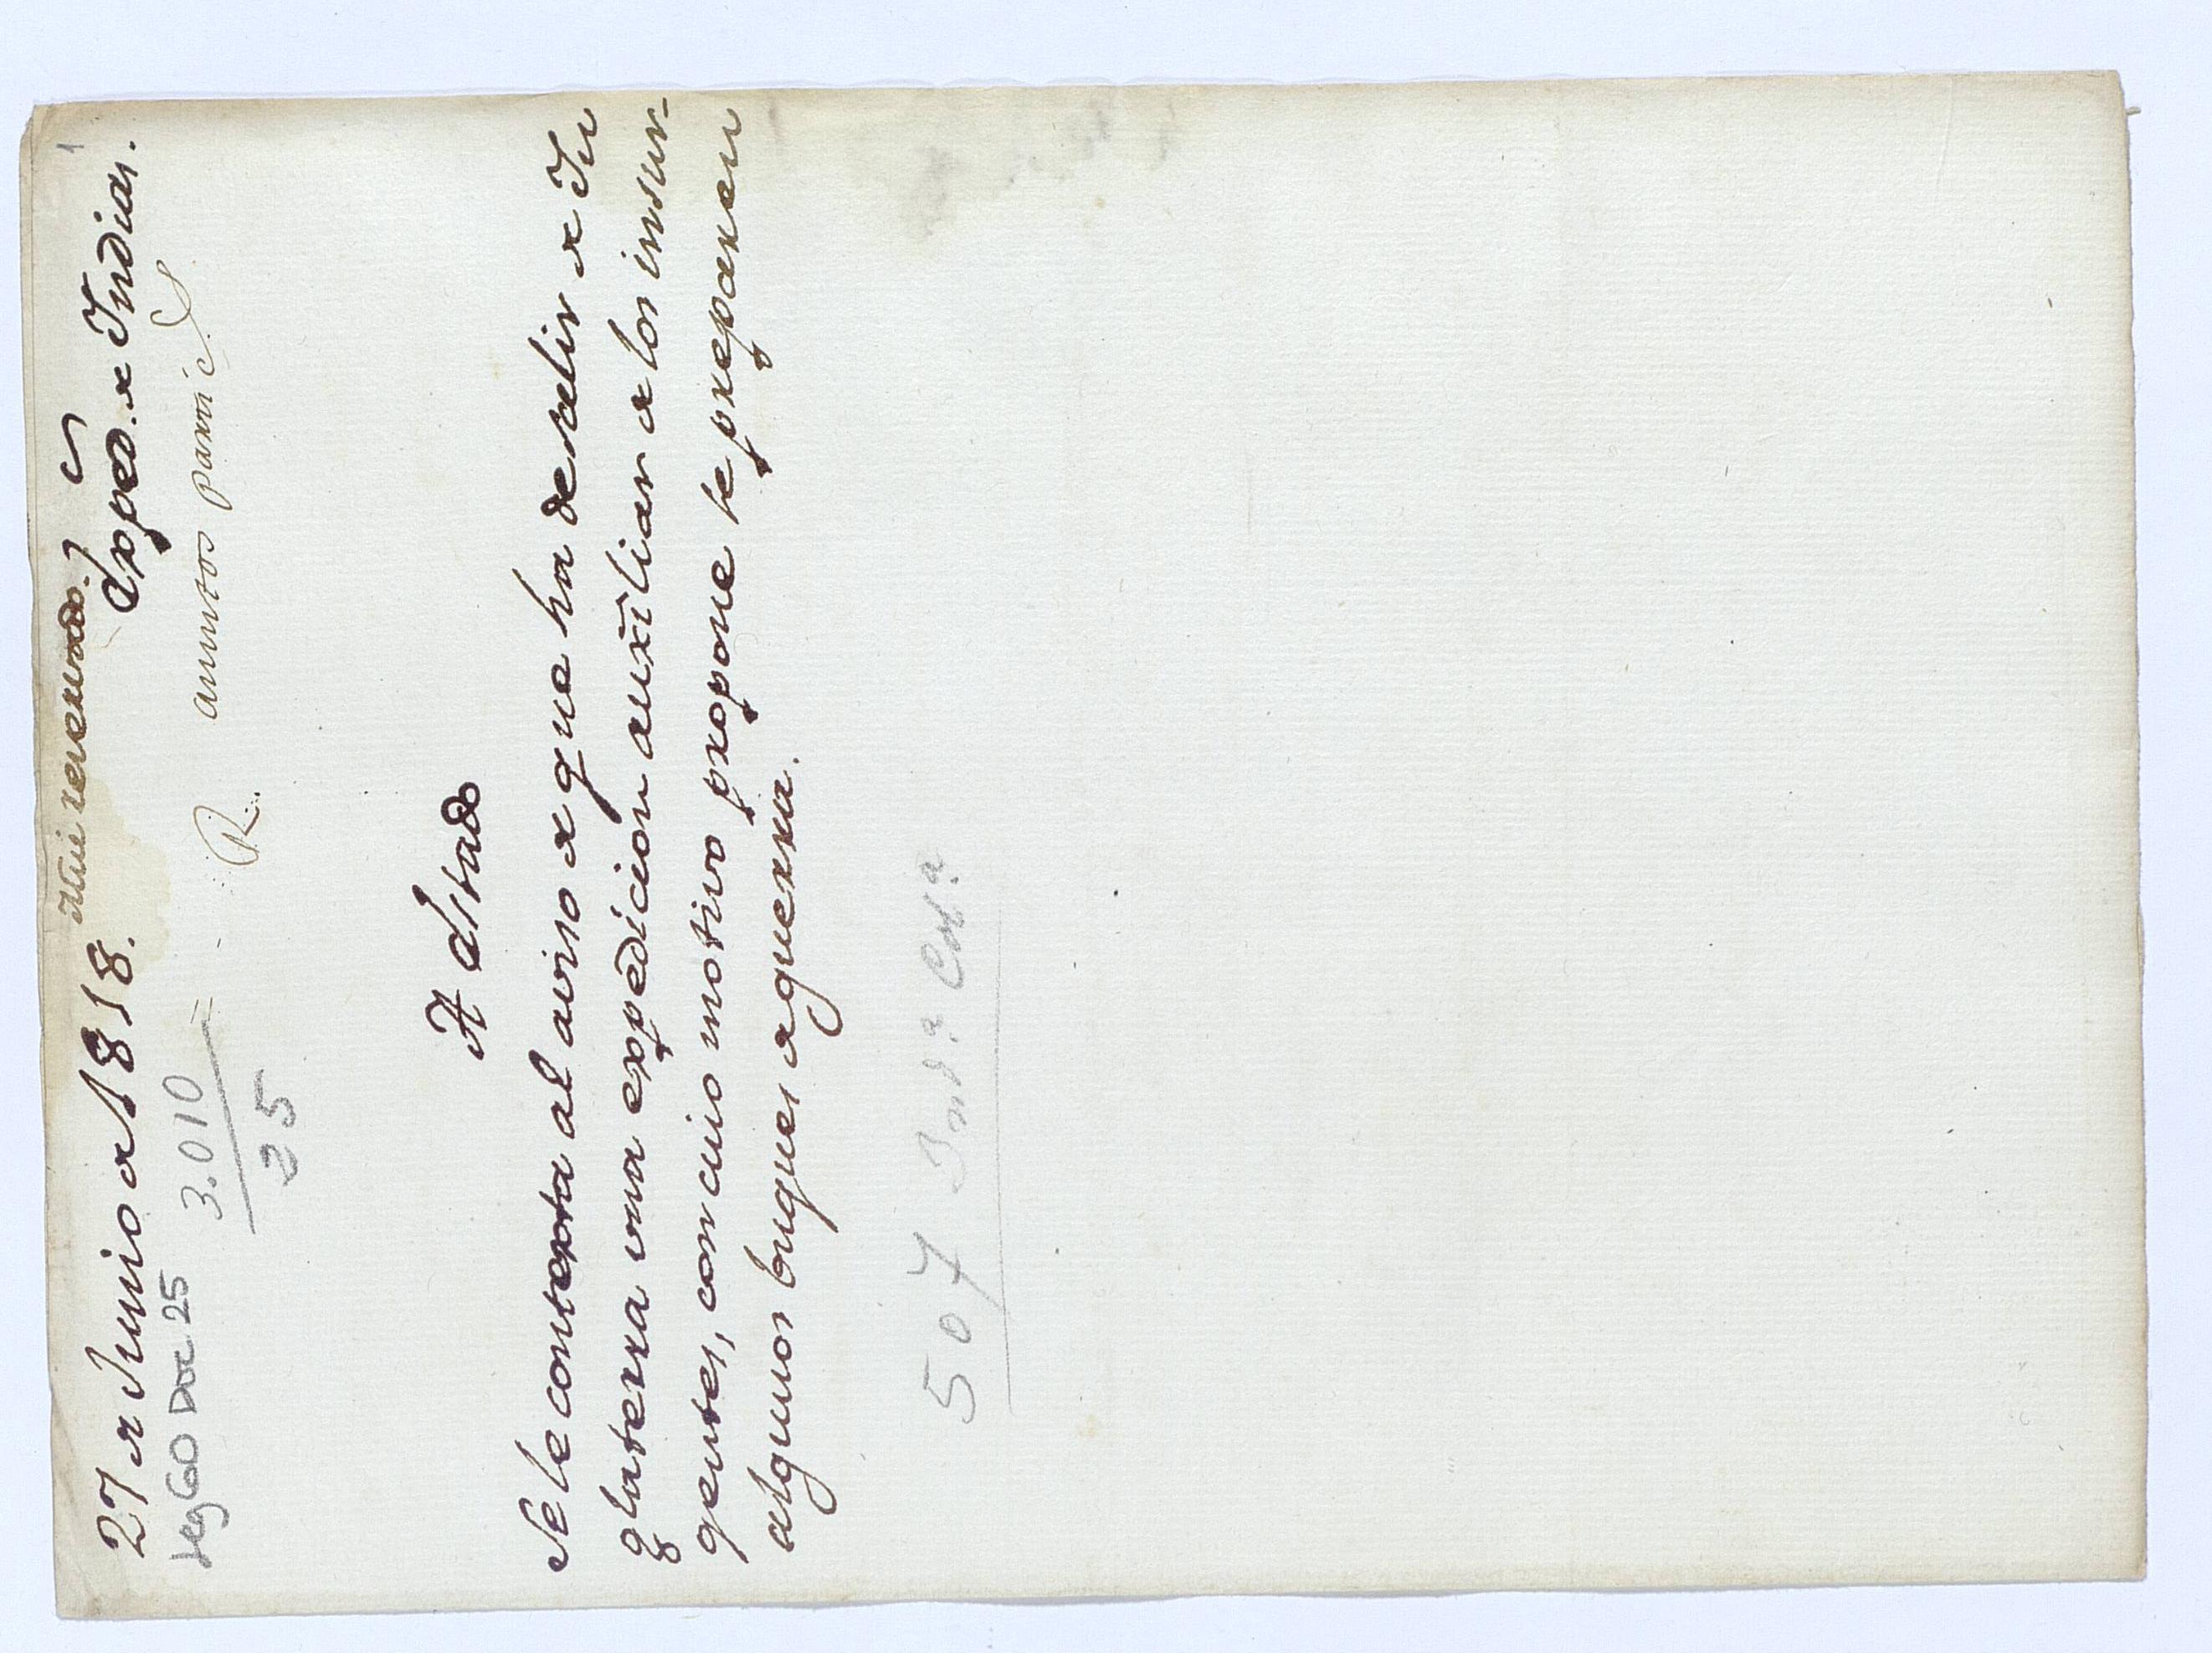 27 de Junio de 1818. Mui reservado.
Exped. de Indias.
1
Leg 60 Doc 25
3.010
35
asuntos partic.s
R.
A Estado
Se le contexta al aviso de que ha de salir de In
glaterra una expedicion auxiliar a los insur-
gentes, con cuio motivo propone se preparen
algunos buques de guerra.
507 Ind.a Col.a